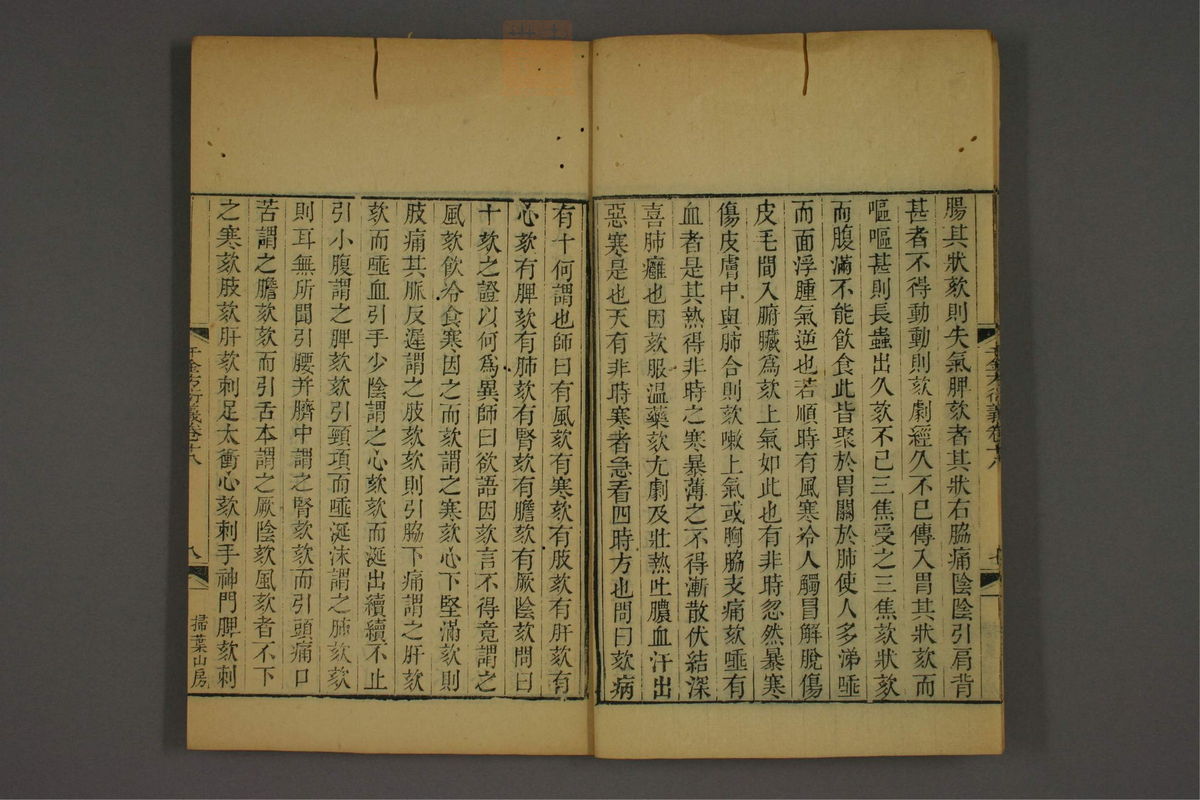 腸其狀欬則失氣脾欬者其狀右脇痛陰陰引肩背
甚者不得動動則欬劇經久不已傳入胃其狀欬而
嘔嘔甚則長蟲出久欬不已三焦受之三焦欬狀欬
而腹滿不能飲食此皆聚於胃關於肺使人多涕唾
而面浮腫氣逆也若順時有風寒冷人觸冒解脫傷
皮毛間入腑臟爲欬上氣如此也有非時忽然暴寒
傷皮膚中與肺合則欬嗽上氣或胸脇支痛欬唾有
血者是其熱得非時之寒暴薄之不得漸散伏結深
喜肺癰也因欬服温藥欬尤劇及壯熱吐膿血汗出
惡寒是也天有非時寒者急看四時方也問曰欬病
千金方衍義卷十八
有十何謂也師曰有風欬有寒欬有肢欬有肝欬有
心欬有脾欬有肺欬有腎欬有膽欬有厥陰欬問曰
十欬之證以何爲異師曰欲語因欬言不得竟謂之
風欬飲冷食寒因之而欬謂之寒欬心下堅滿欬則
肢痛其脈反遲謂之肢欬欬則引脇下痛謂之肝欬
欬而唾血引手少陰謂之心欬欬而涎出續續不止
引小腹謂之脾欬欬引頸項而唾涎沫謂之肺欬欬
則耳無所聞引腰并臍中謂之腎欬欬而引頭痛口
苦謂之膽欬欬而引舌本謂之厥陰欬風欬者不下
之寒欬肢欬肝欬刺足太衝心欬刺手神門脾欬刺
千金方衍義卷十八
八
掃葉山房